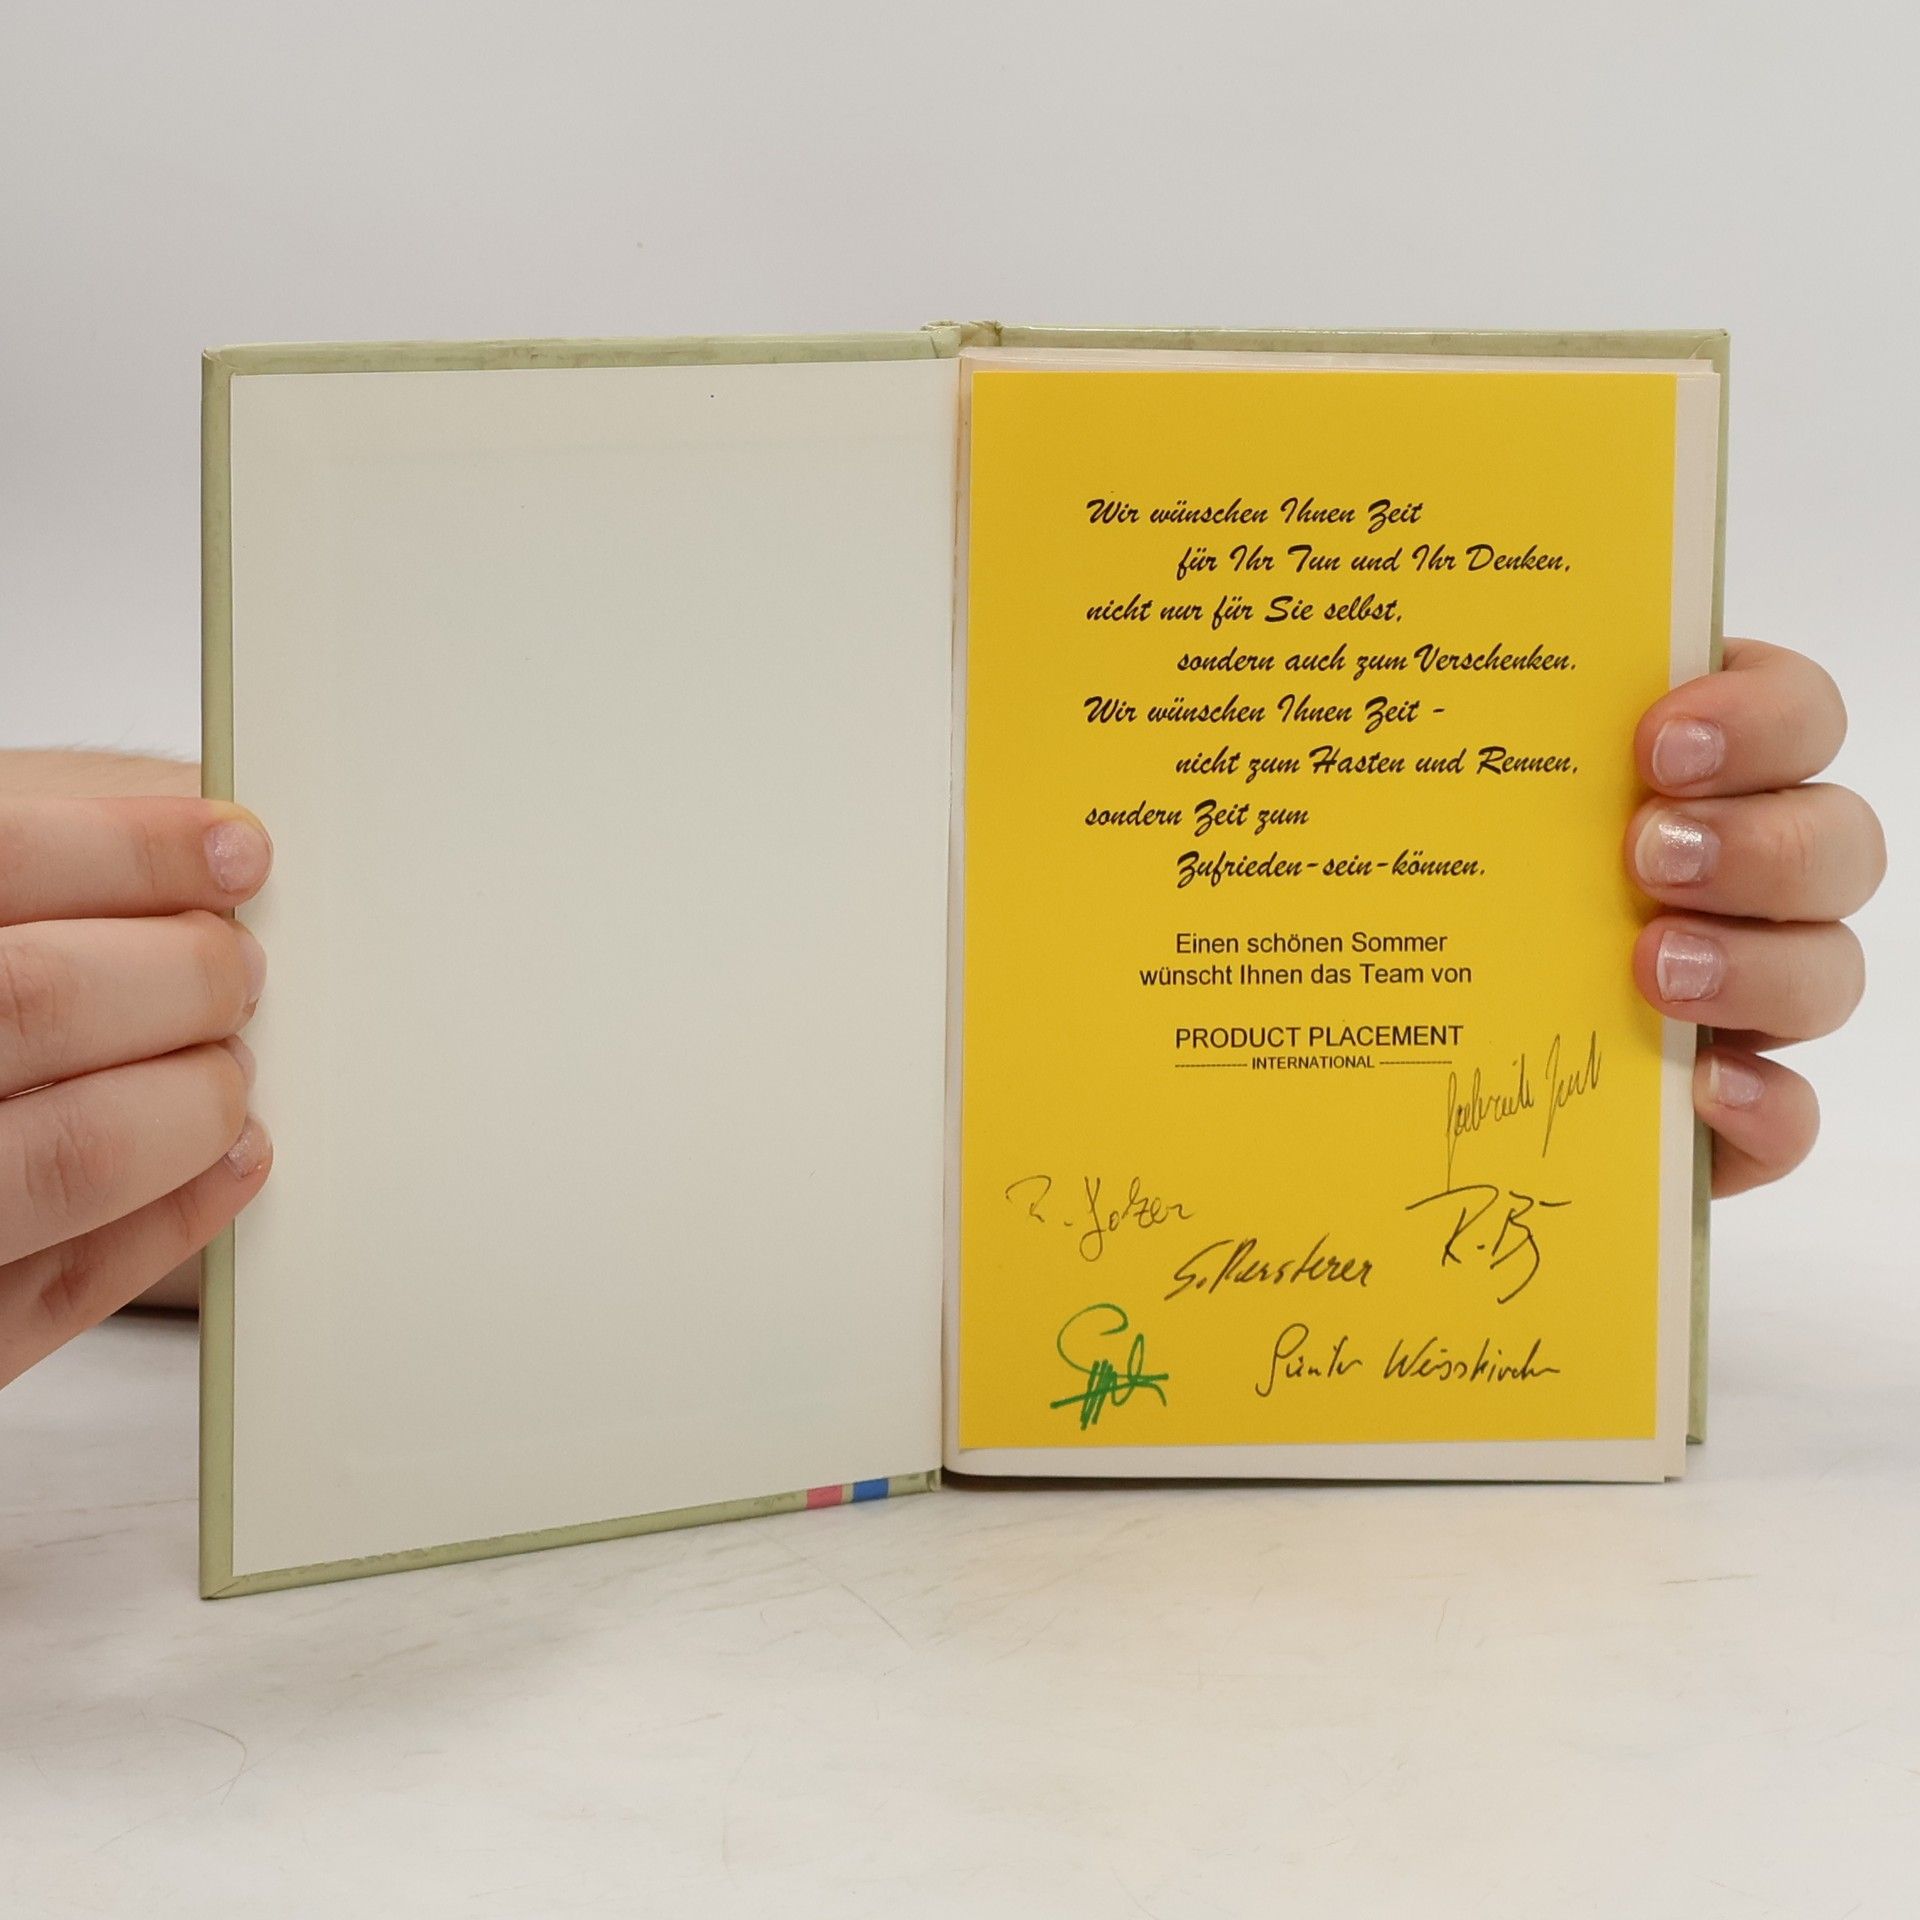 Wir wünschen Ihnen Zeit
für Ihr Tun und Ihr Denken,
nicht nur für Sie selbst,
sondern auch zum Verschenken.
Wir wünschen Ihnen Zeit -
nicht zum Hasten und Rennen,
sondern Zeit zum
Zufrieden-sein-können.
Einen schönen Sommer
wünscht Ihnen das Team von
PRODUCT PLACEMENT
INTERNATIONAL
R. Holzer
Günter Weisskircher